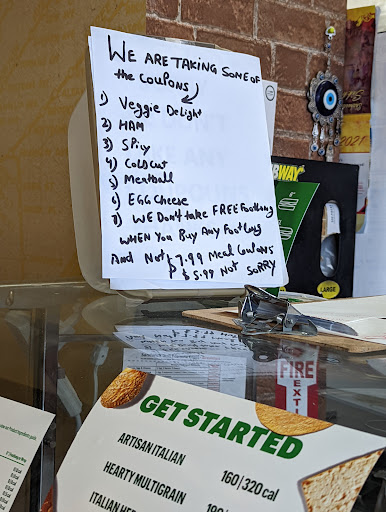 WE ARE TAKING SOME OF
the COUPONS
1) Veggie Delight
2) HAM
3) SPicy
4) COLDCUT
5) Meatball
6) EGG Cheese
7) WE Don't take FREE Footlong
WHEN You Buy Any Footlong
And Not 7.99 Meal Coutons
$ 5.99 NOT SORRY
BWAY
LARGE
2021
FIRE
EXTI
GET STARTED
ARTISAN ITALIAN
160/320 cal
HEARTY MULTIGRAIN
ITALIAN HER